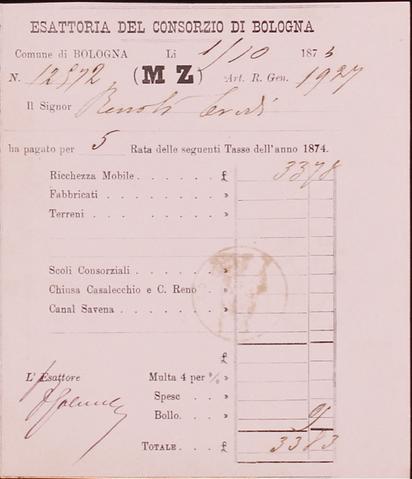 ESATTORIA DEL CONSORZIO DI BOLOGNA
Comune di BOLOGNA Li 1/10 187
N. 12572 (M Z) Art. R. Gen. 1927
Il Signor Eredi
ha pagato per 5 Rata delle seguenti Tasse dell'anno 1874.
Ricchezza Mobile . . . . . . £ 3378
Fabbricati . . . . . . . . »
Terreni . . . . . . . . . »
Scoli Consorziali . . . . . . »
Chiusa Casalecchio e C. Reno »
Canal Savena . . . . . . . »
£
L'Esattore Multa 4 per % »
Spese »
Bollo. . »
TOTALE . . £ 3383